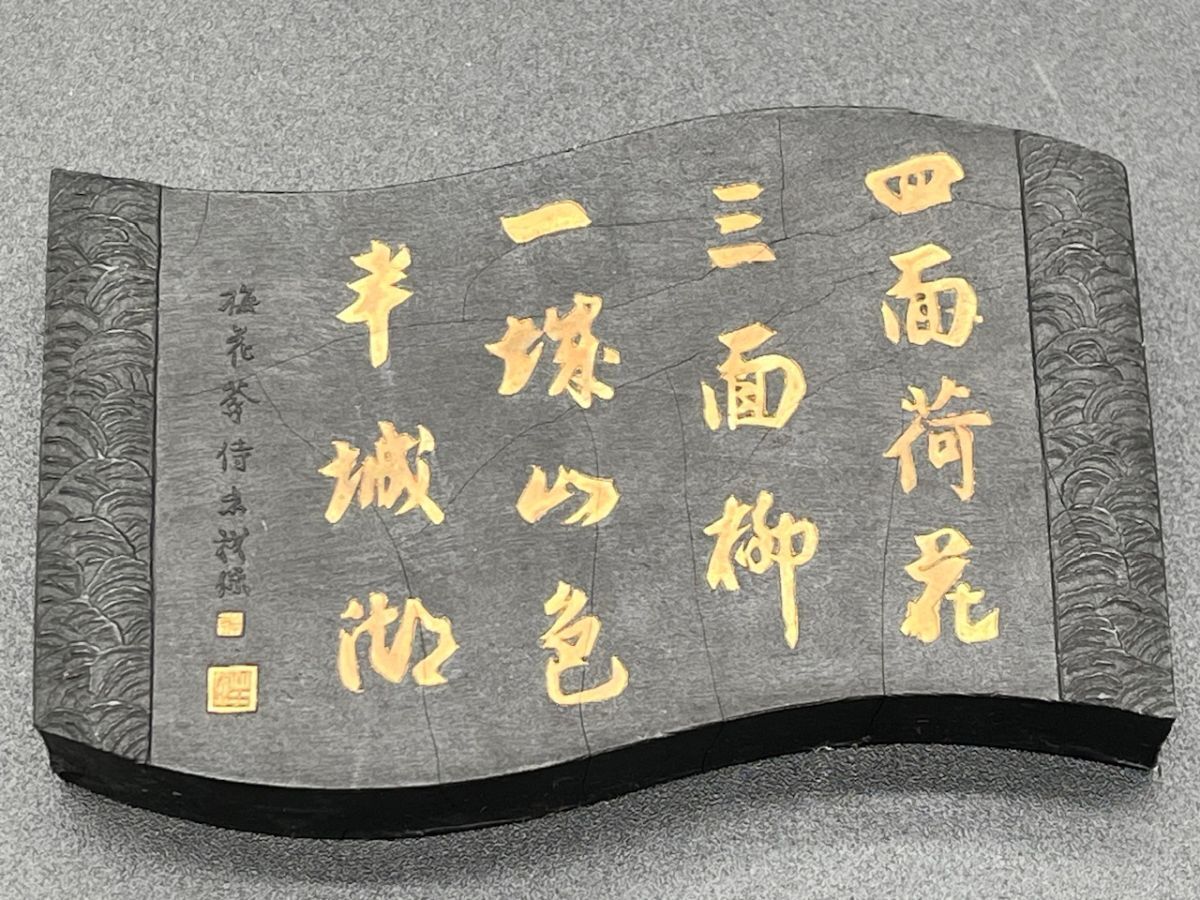 四面荷花
三面柳
一城山色
半城湖
梅花
侍